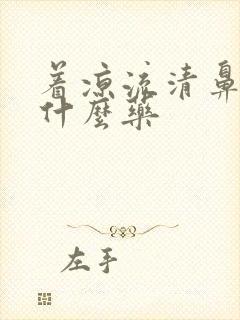 着凉流清鼻
什麼药
左手